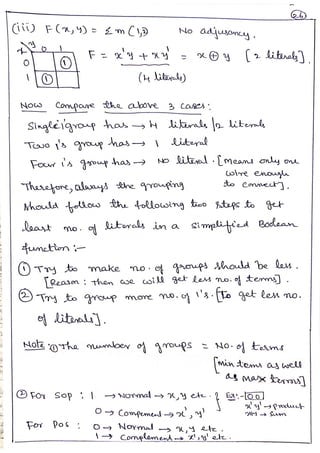 26
(iii) F(x,y) = Σm(1,3) No adjusancy.
x y 0 1
0 1
1 1
F = x'y + xy' = x⊕y [2 literals]
(4 literals)
Now compare the above 3 cases:
Single 1 group has → 4 literals/2 literals
Two 1's group has → 1 literal
Four 1's group has → No literal. [means only one
wire enough
to connect].
Therefore, always the grouping
should follow the following two steps to get
least no. of literals in a simplified Boolean
function:-
① Try to make no. of groups should be less.
[Reason: Then we will get less no. of terms].
② Try to group more no. of 1's. [To get less no.
of literals].
Note: ① The number of groups = No. of terms
[min terms as well
as max terms]
② For SOP : 1 → Normal → x, y etc. Ex:- [00]
0 → Compement → x', y' x'y' → product
x+y → sum
For Pos : 0 → Normal → x, y etc.
1 → Complement → x', y' etc.